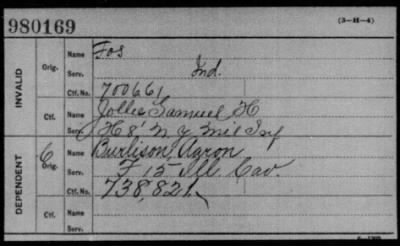 980169 (3-H-4)
INVALID
Orig. Name Fos
Serv. Ind.
Ctf. No. 700661
Ctf. Name Jolles Samuel H
Serv. H 8' N Y Mil Inf
DEPENDENT
Orig. 6 Name Burlison, Aaron
Serv. F 15 Ill Cav.
Ctf. No. 738,821
Ctf. Name
Serv.